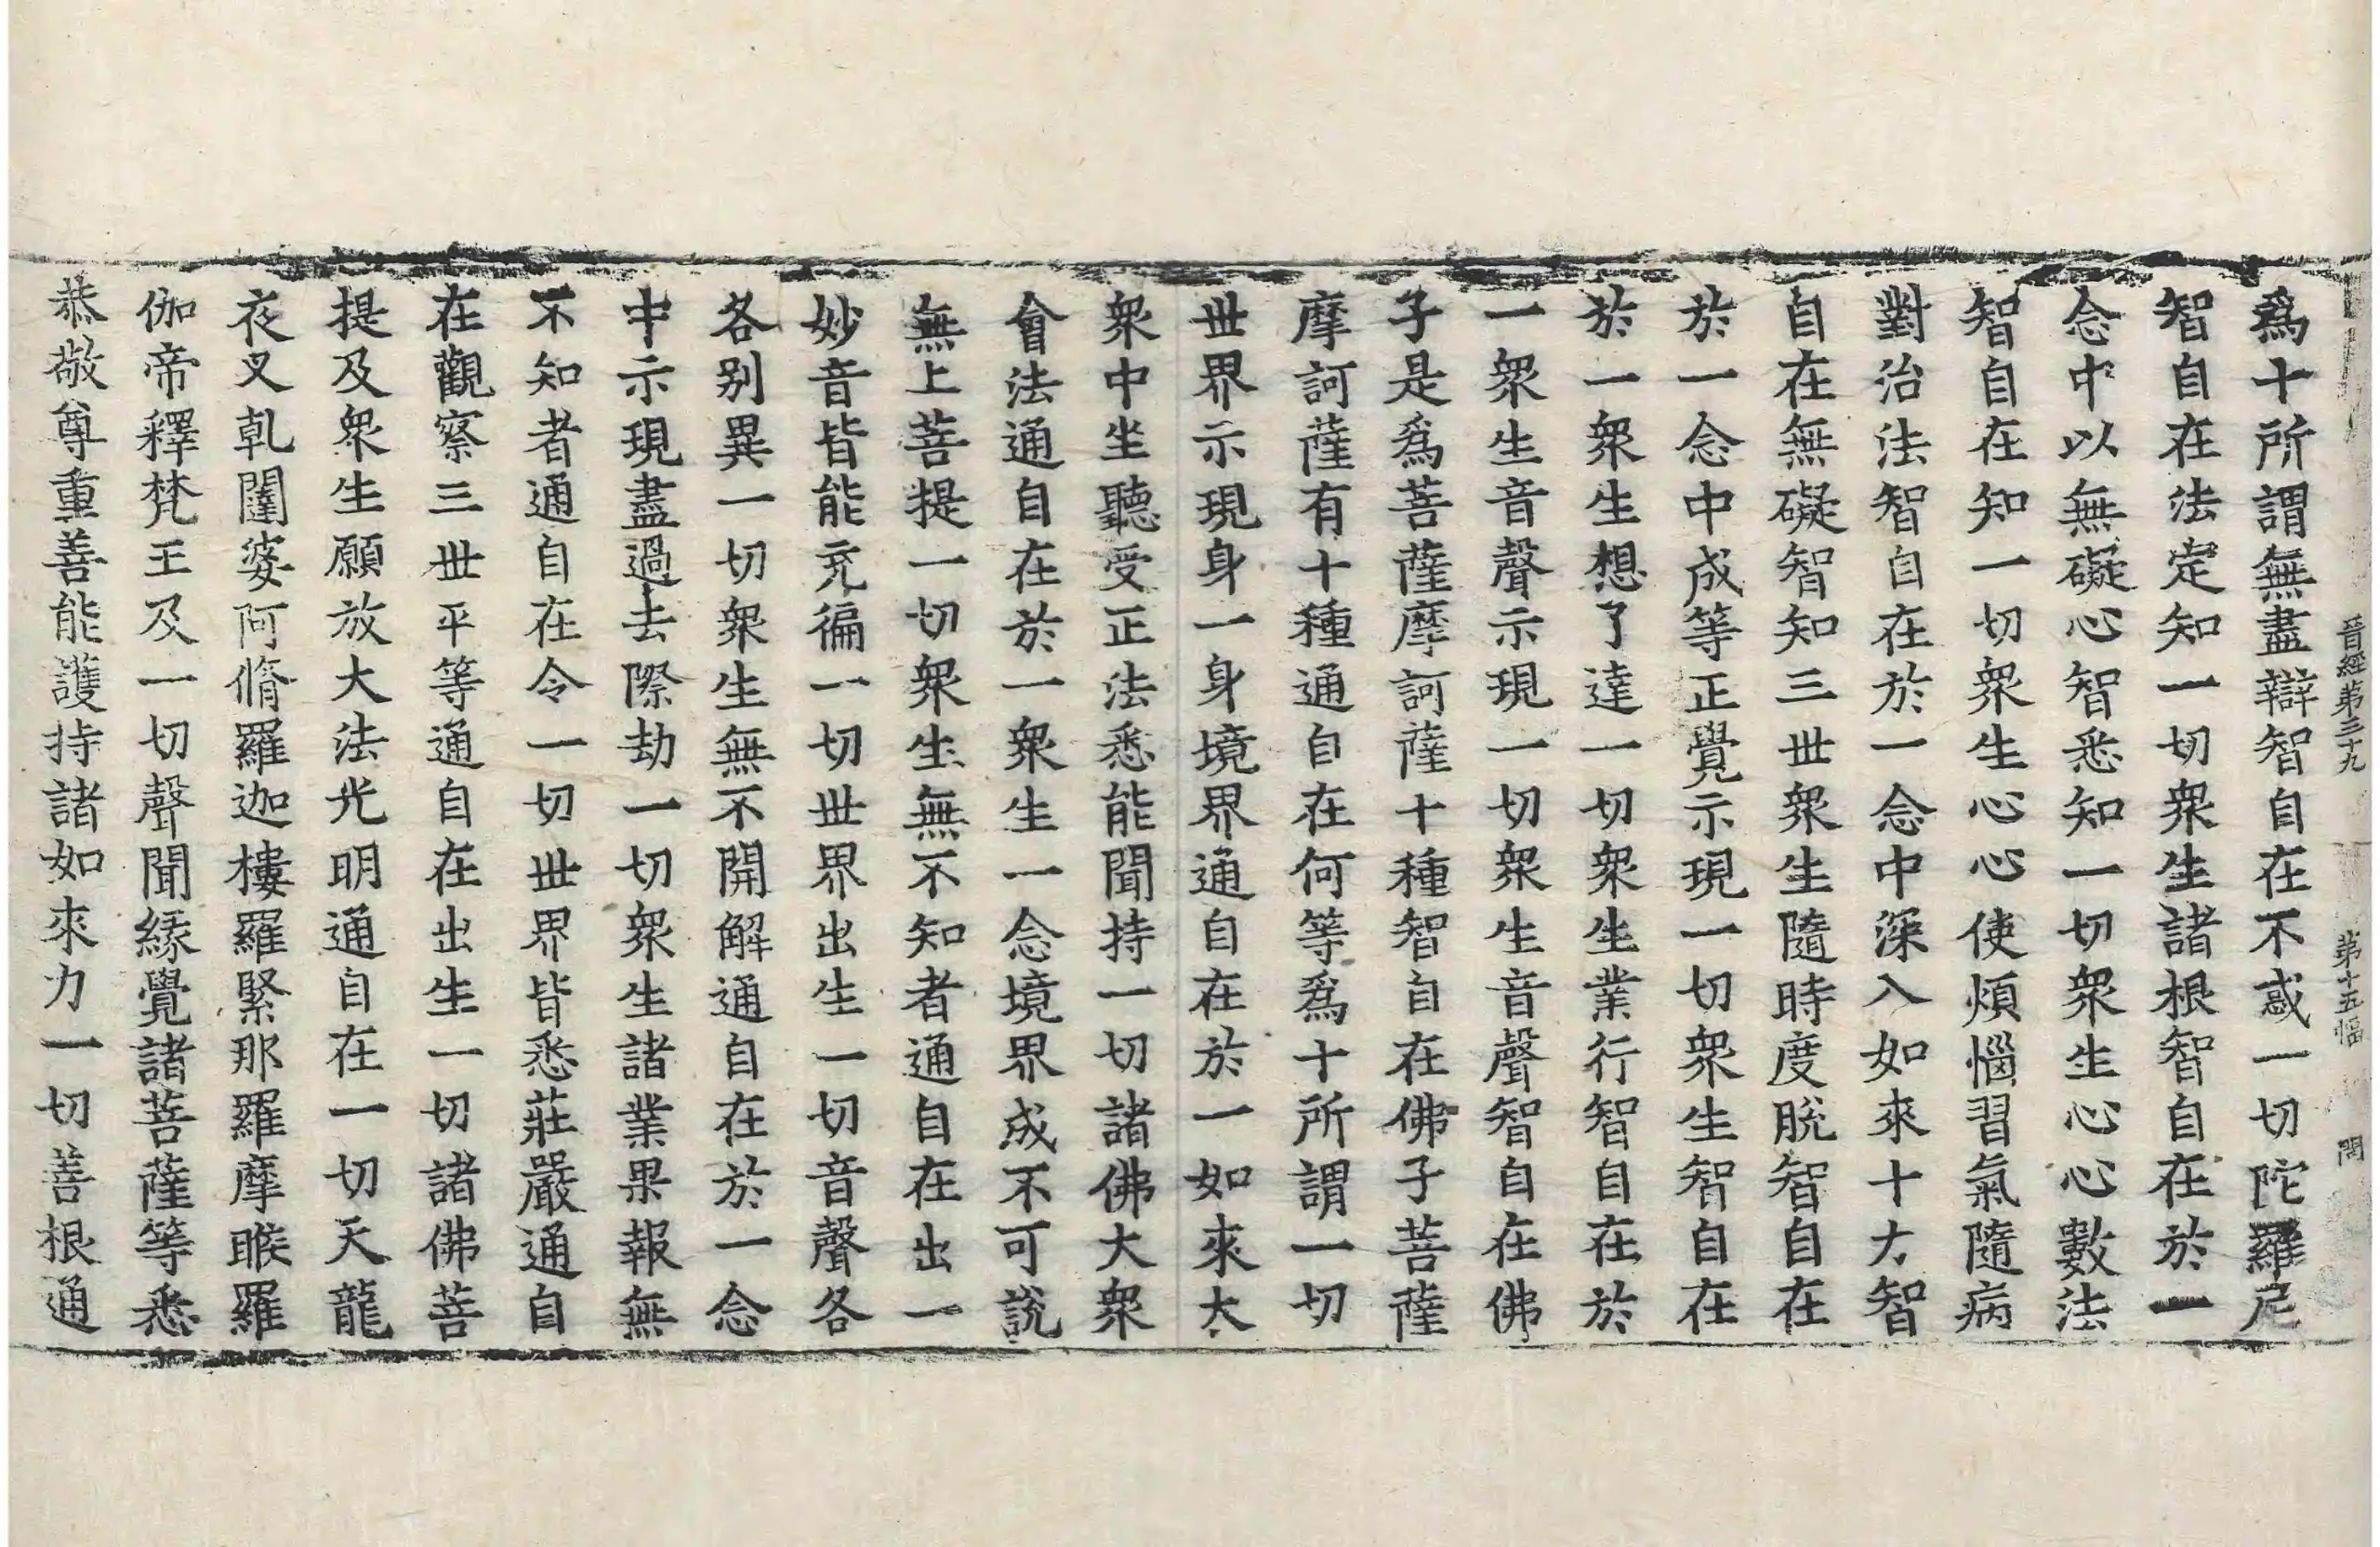 晉經第三十九　第十五幅　開
爲十所謂無盡辯智自在不惑一切陀羅尼
智自在法定知一切衆生諸根智自在於一
念中以無礙心智悉知一切衆生心心數法
智自在知一切衆生心心使煩惱習氣隨病
對治法智自在於一念中深入如來十力智
自在無礙智知三世衆生隨時度脫智自在
於一念中成等正覺示現一切衆生智自在
於一衆生想了達一切衆生業行智自在於
一衆生音聲示現一切衆生音聲智自在佛
子是爲菩薩摩訶薩十種智自在佛子菩薩
摩訶薩有十種通自在何等爲十所謂一切
世界示現身一身境界通自在於一如來大
衆中坐聽受正法悉能聞持一切諸佛大衆
會法通自在於一衆生一念境界成不可說
無上菩提一切衆生無不知者通自在出一
妙音皆能充徧一切世界出生一切音聲各
各别異一切衆生無不開解通自在於一念
中示現盡過去際劫一切衆生諸業果報無
不知者通自在令一切世界皆悉莊嚴通自
在觀察三世平等通自在出生一切諸佛菩
提及衆生願放大法光明通自在一切天龍
夜叉乹闥婆阿脩羅迦樓羅緊那羅摩睺羅
伽帝釋梵王及一切聲聞緣覺諸菩薩等悉
恭敬尊重善能護持諸如來力一切善根通